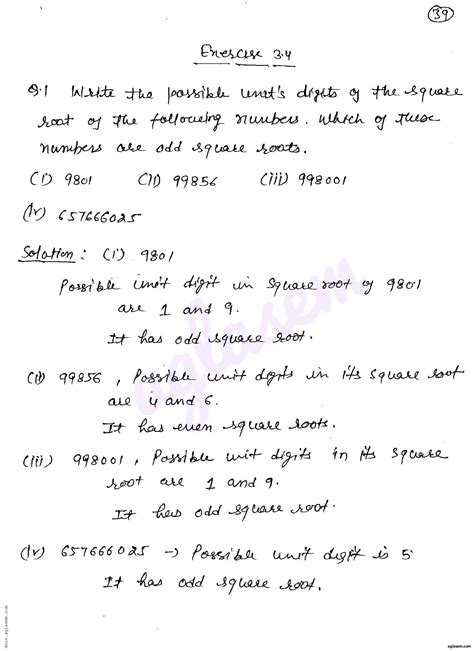 39
Exercise 3.4
Q.1 Write the possible unit's digits of the square
root of the following numbers. Which of these
numbers are odd square roots.
(i) 9801 (ii) 99856 (iii) 998001
(iv) 657666025
Solution : (i) 9801
Possible unit digit in square root of 9801
are 1 and 9.
It has odd square root.
(ii) 99856 , Possible unit digits in its square root
are 4 and 6.
It has even square roots.
(iii) 998001 , Possible unit digits in its square
root are 1 and 9.
It has odd square root.
(iv) 657666025 → Possible unit digit is 5
It has odd square root.
aglasem
docs.aglasem.com
aglasem.com